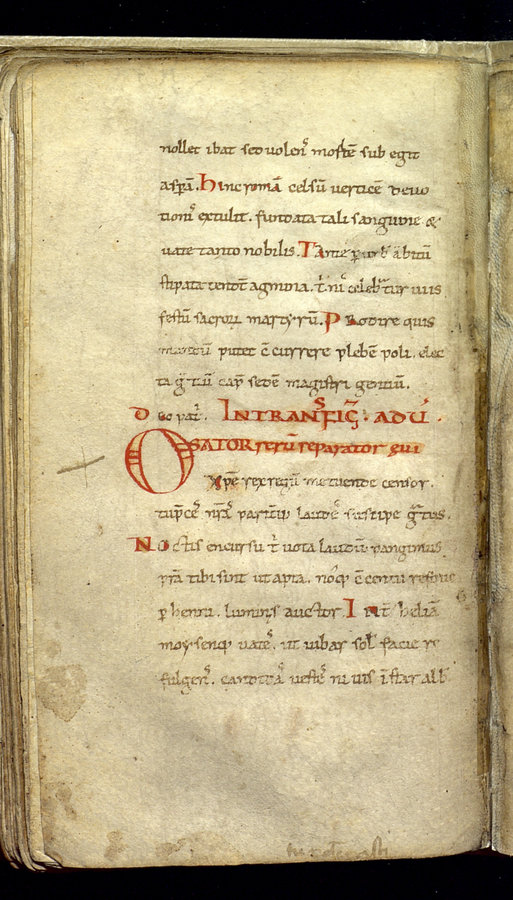 nollet ibat sed volenſ moſtē sub egit
aspã. hinc romã celsū vertice devo
tioniſ extulit. fundata tali sanguine &
vate tanto nobilis. Tantę p urbiſ ãbitū
ſtipata tendunt agmina. celebrat̃ur viis
feſtū sacrorū martyrū. Prodire quis
mundū putet c̄currere plebem poli. elec
ta gentiū cap̃ sedem magiſtri gentiū.
Deo pat̃. IN TRANSFIG̃. ADÑI.
O SATOR rerū reparator ęvi
xp̄e rex regū metuende censor.
tu p̄ceſ nr̃aſ paritur laudeſ suscipe gratuſ.
Noctis en cursu t̄ vota laudū pangimus
pr̃a tibi sint ut apta. noſq c̄centu refove
p henni. luminis auctor. Int̃ heliã
moysenq vateſ. ut iubar solis facie re
fulgenſ. candidaſ veſteſ nivis īſtar alb